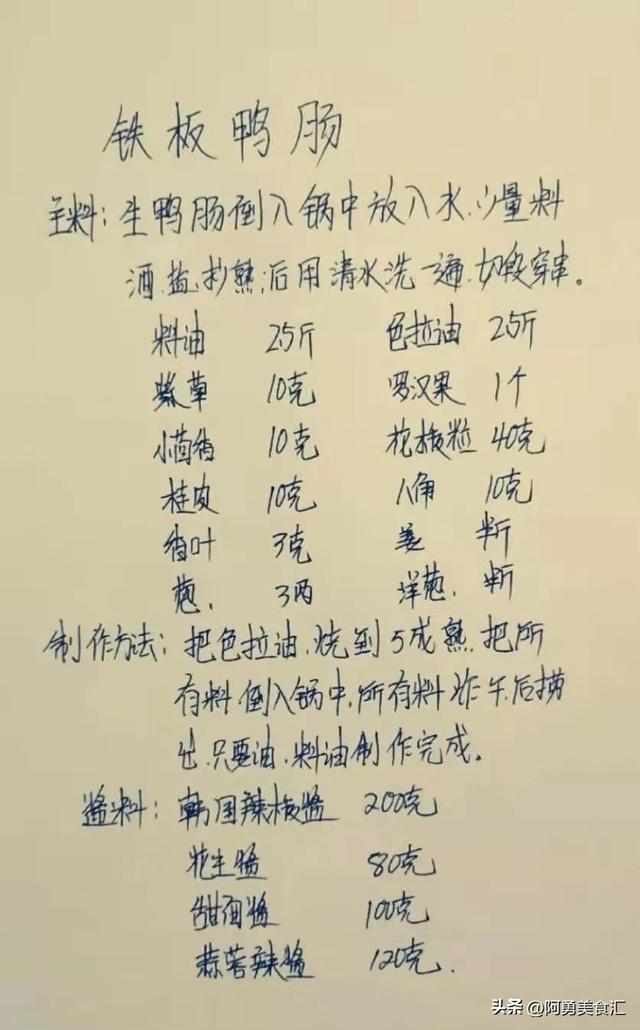 铁板鸭肠
主料：生鸭肠倒入锅中放入水、少量料
酒、盐、抄熟，后用清水洗一遍、切段穿串。
料油 25斤 色拉油 25斤
紫草 10克 罗汉果 1个
小茴香 10克 花椒粒 40克
桂皮 10克 八角 10克
香叶 3克 姜 半斤
葱、 3两 洋葱、半斤
制作方法：把色拉油、烧到5成熟、把所
有料、倒入锅中、所有料炸干、后捞
出、只要油、料油制作完成。
酱料：韩国辣椒酱 200克
花生酱 80克
甜面酱 100克
蒜蓉辣酱 120克.
头条 @阿勇美食汇